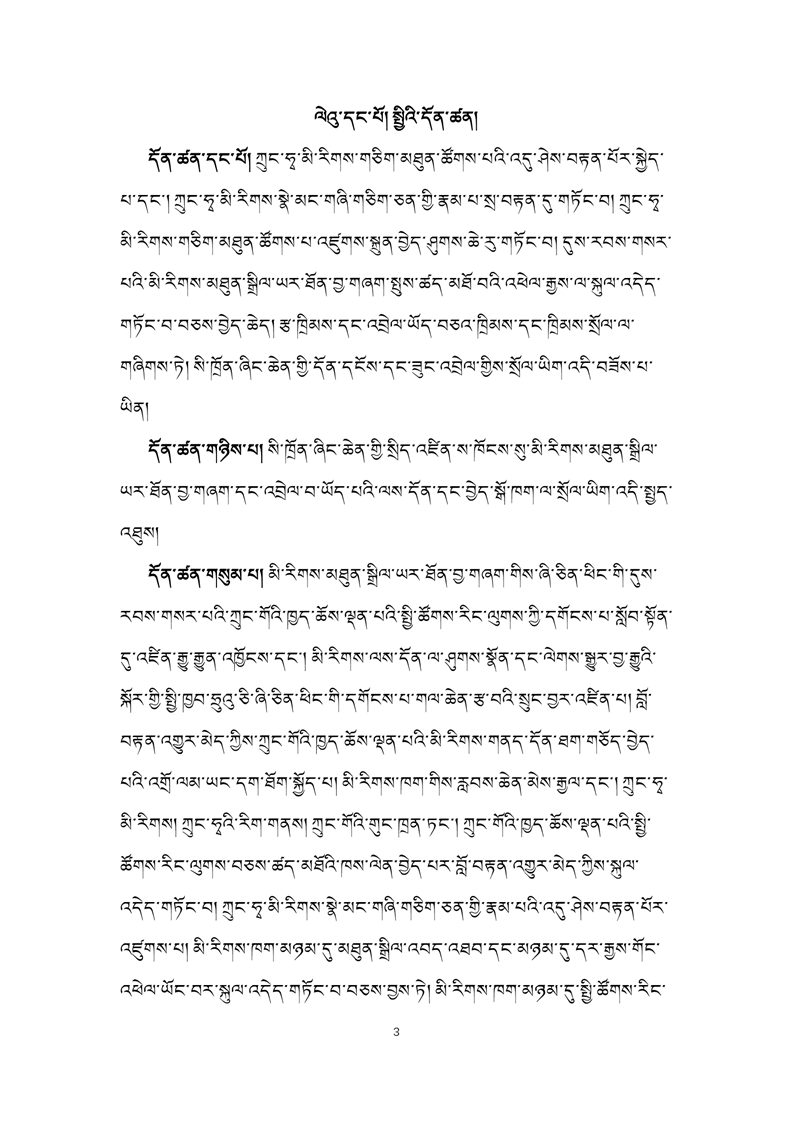 ལེའུ་དང་པོ། སྤྱིའི་དོན་ཚན།
དོན་ཚན་དང་པོ། ཀྲུང་ཧྭ་མི་རིགས་གཅིག་མཐུན་ཚོགས་པའི་འདུ་ཤེས་བརྟན་པོར་སྐྱེད་
པ་དང་། ཀྲུང་ཧྭ་མི་རིགས་སྣེ་མང་གཞི་གཅིག་ཅན་གྱི་རྣམ་པ་སྲ་བརྟན་དུ་གཏོང་བ། ཀྲུང་ཧྭ་
མི་རིགས་གཅིག་མཐུན་ཚོགས་པ་འཛུགས་སྐྲུན་བྱེད་ཤུགས་ཆེ་རུ་གཏོང་བ། དུས་རབས་གསར་
པའི་མི་རིགས་མཐུན་སྒྲིལ་ཡར་ཐོན་བྱ་གཞག་སྤུས་ཚད་མཐོ་བའི་འཕེལ་རྒྱས་ལ་སྐུལ་འདེད་
གཏོང་བ་བཅས་བྱེད་ཆེད། རྩ་ཁྲིམས་དང་འབྲེལ་ཡོད་བཅའ་ཁྲིམས་དང་ཁྲིམས་སྲོལ་ལ་
གཞིགས་ཏེ། སི་ཁྲོན་ཞིང་ཆེན་གྱི་དོན་དངོས་དང་ཟུང་འབྲེལ་གྱིས་སྲོལ་ཡིག་འདི་བཟོས་པ་
ཡིན།
དོན་ཚན་གཉིས་པ། སི་ཁྲོན་ཞིང་ཆེན་གྱི་སྲིད་འཛིན་ས་ཁོངས་སུ་མི་རིགས་མཐུན་སྒྲིལ་
ཡར་ཐོན་བྱ་གཞག་དང་འབྲེལ་བ་ཡོད་པའི་ལས་དོན་དང་བྱེད་སྒོ་ཁག་ལ་སྲོལ་ཡིག་འདི་སྤྱད་
འཐུས།
དོན་ཚན་གསུམ་པ། མི་རིགས་མཐུན་སྒྲིལ་ཡར་ཐོན་བྱ་གཞག་གིས་ཞི་ཅིན་ཕིང་གི་དུས་
རབས་གསར་པའི་ཀྲུང་གོའི་ཁྱད་ཆོས་ལྡན་པའི་སྤྱི་ཚོགས་རིང་ལུགས་ཀྱི་དགོངས་པ་སློབ་སྟོན་
དུ་འཛིན་རྒྱུ་རྒྱུན་འཁྱོངས་དང་། མི་རིགས་ལས་དོན་ལ་ཤུགས་སྣོན་དང་ལེགས་སྒྱུར་བྱ་རྒྱུའི་
སྐོར་གྱི་སྤྱི་ཁྱབ་ཧྲུའུ་ཅི་ཞི་ཅིན་ཕིང་གི་དགོངས་པ་གལ་ཆེན་རྩ་བའི་སྲུང་བྱར་འཛིན་པ། བློ་
བརྟན་འགྱུར་མེད་ཀྱིས་ཀྲུང་གོའི་ཁྱད་ཆོས་ལྡན་པའི་མི་རིགས་གནད་དོན་ཐག་གཅོད་བྱེད་
པའི་འགྲོ་ལམ་ཡང་དག་ཐོག་སྐྱོད་པ། མི་རིགས་ཁག་གིས་རླབས་ཆེན་མེས་རྒྱལ་དང་། ཀྲུང་ཧྭ་
མི་རིགས། ཀྲུང་ཧྭའི་རིག་གནས། ཀྲུང་གོའི་གུང་ཁྲན་ཏང་། ཀྲུང་གོའི་ཁྱད་ཆོས་ལྡན་པའི་སྤྱི་
ཚོགས་རིང་ལུགས་བཅས་ཚད་མཐོའི་ཁས་ལེན་བྱེད་པར་བློ་བརྟན་འགྱུར་མེད་ཀྱིས་སྐུལ་
འདེད་གཏོང་བ། ཀྲུང་ཧྭ་མི་རིགས་སྣེ་མང་གཞི་གཅིག་ཅན་གྱི་རྣམ་པའི་འདུ་ཤེས་བརྟན་པོར་
འཛུགས་པ། མི་རིགས་ཁག་མཉམ་དུ་མཐུན་སྒྲིལ་འབད་འཐབ་དང་མཉམ་དུ་དར་རྒྱས་གོང་
འཕེལ་ཡོང་བར་སྐུལ་འདེད་གཏོང་བ་བཅས་བྱས་ཏེ། མི་རིགས་ཁག་མཉམ་དུ་སྤྱི་ཚོགས་རིང་
3